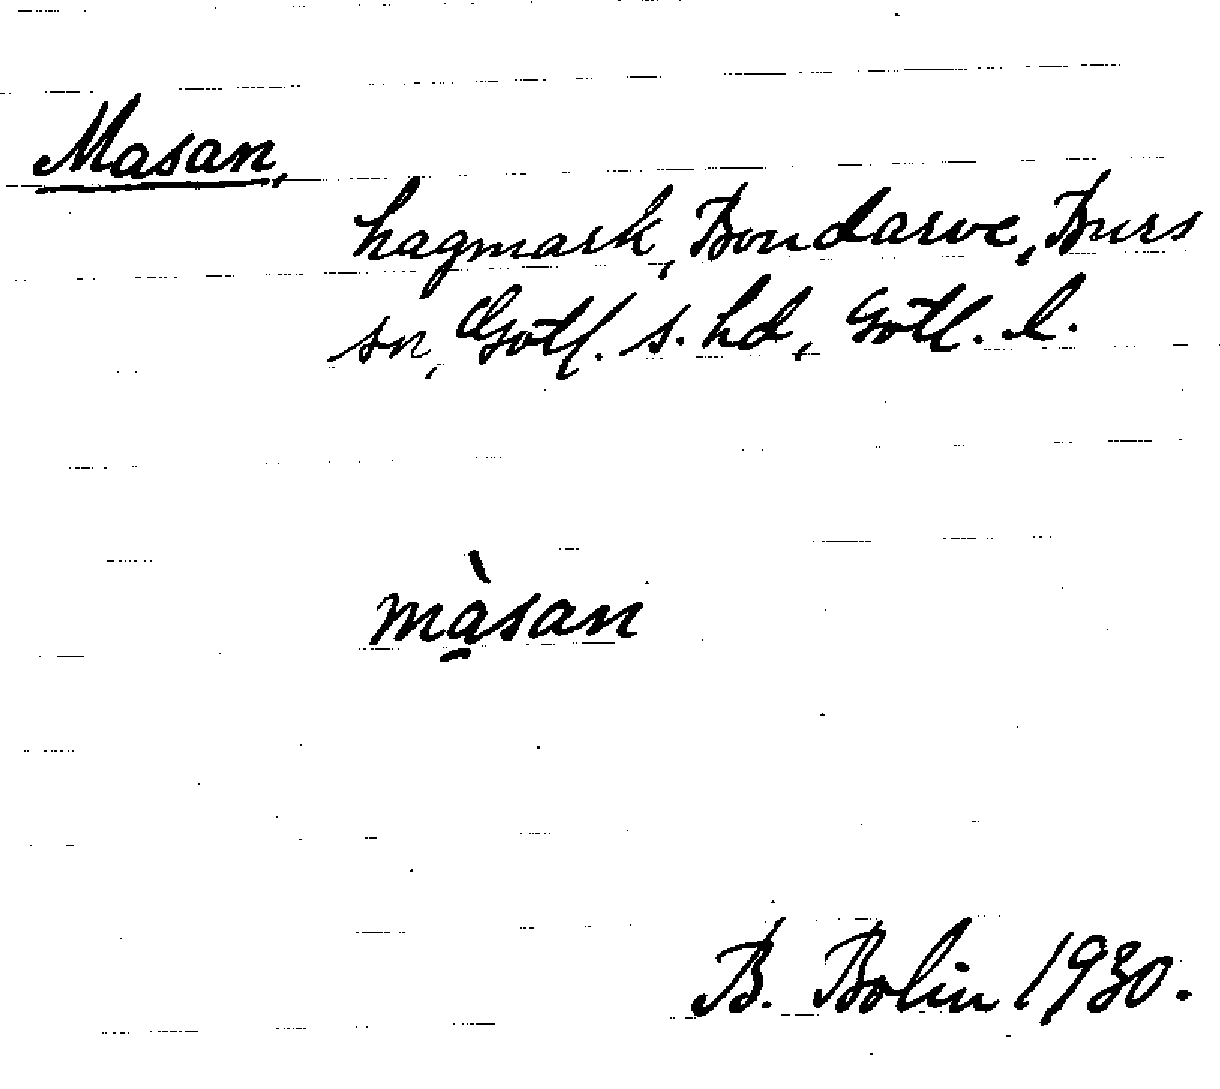 Masan,
hagmark, Bondarve, Burs
sn, Gotl. s. hd, Gotl. l.
mà̱san
B. Bolin 1930.